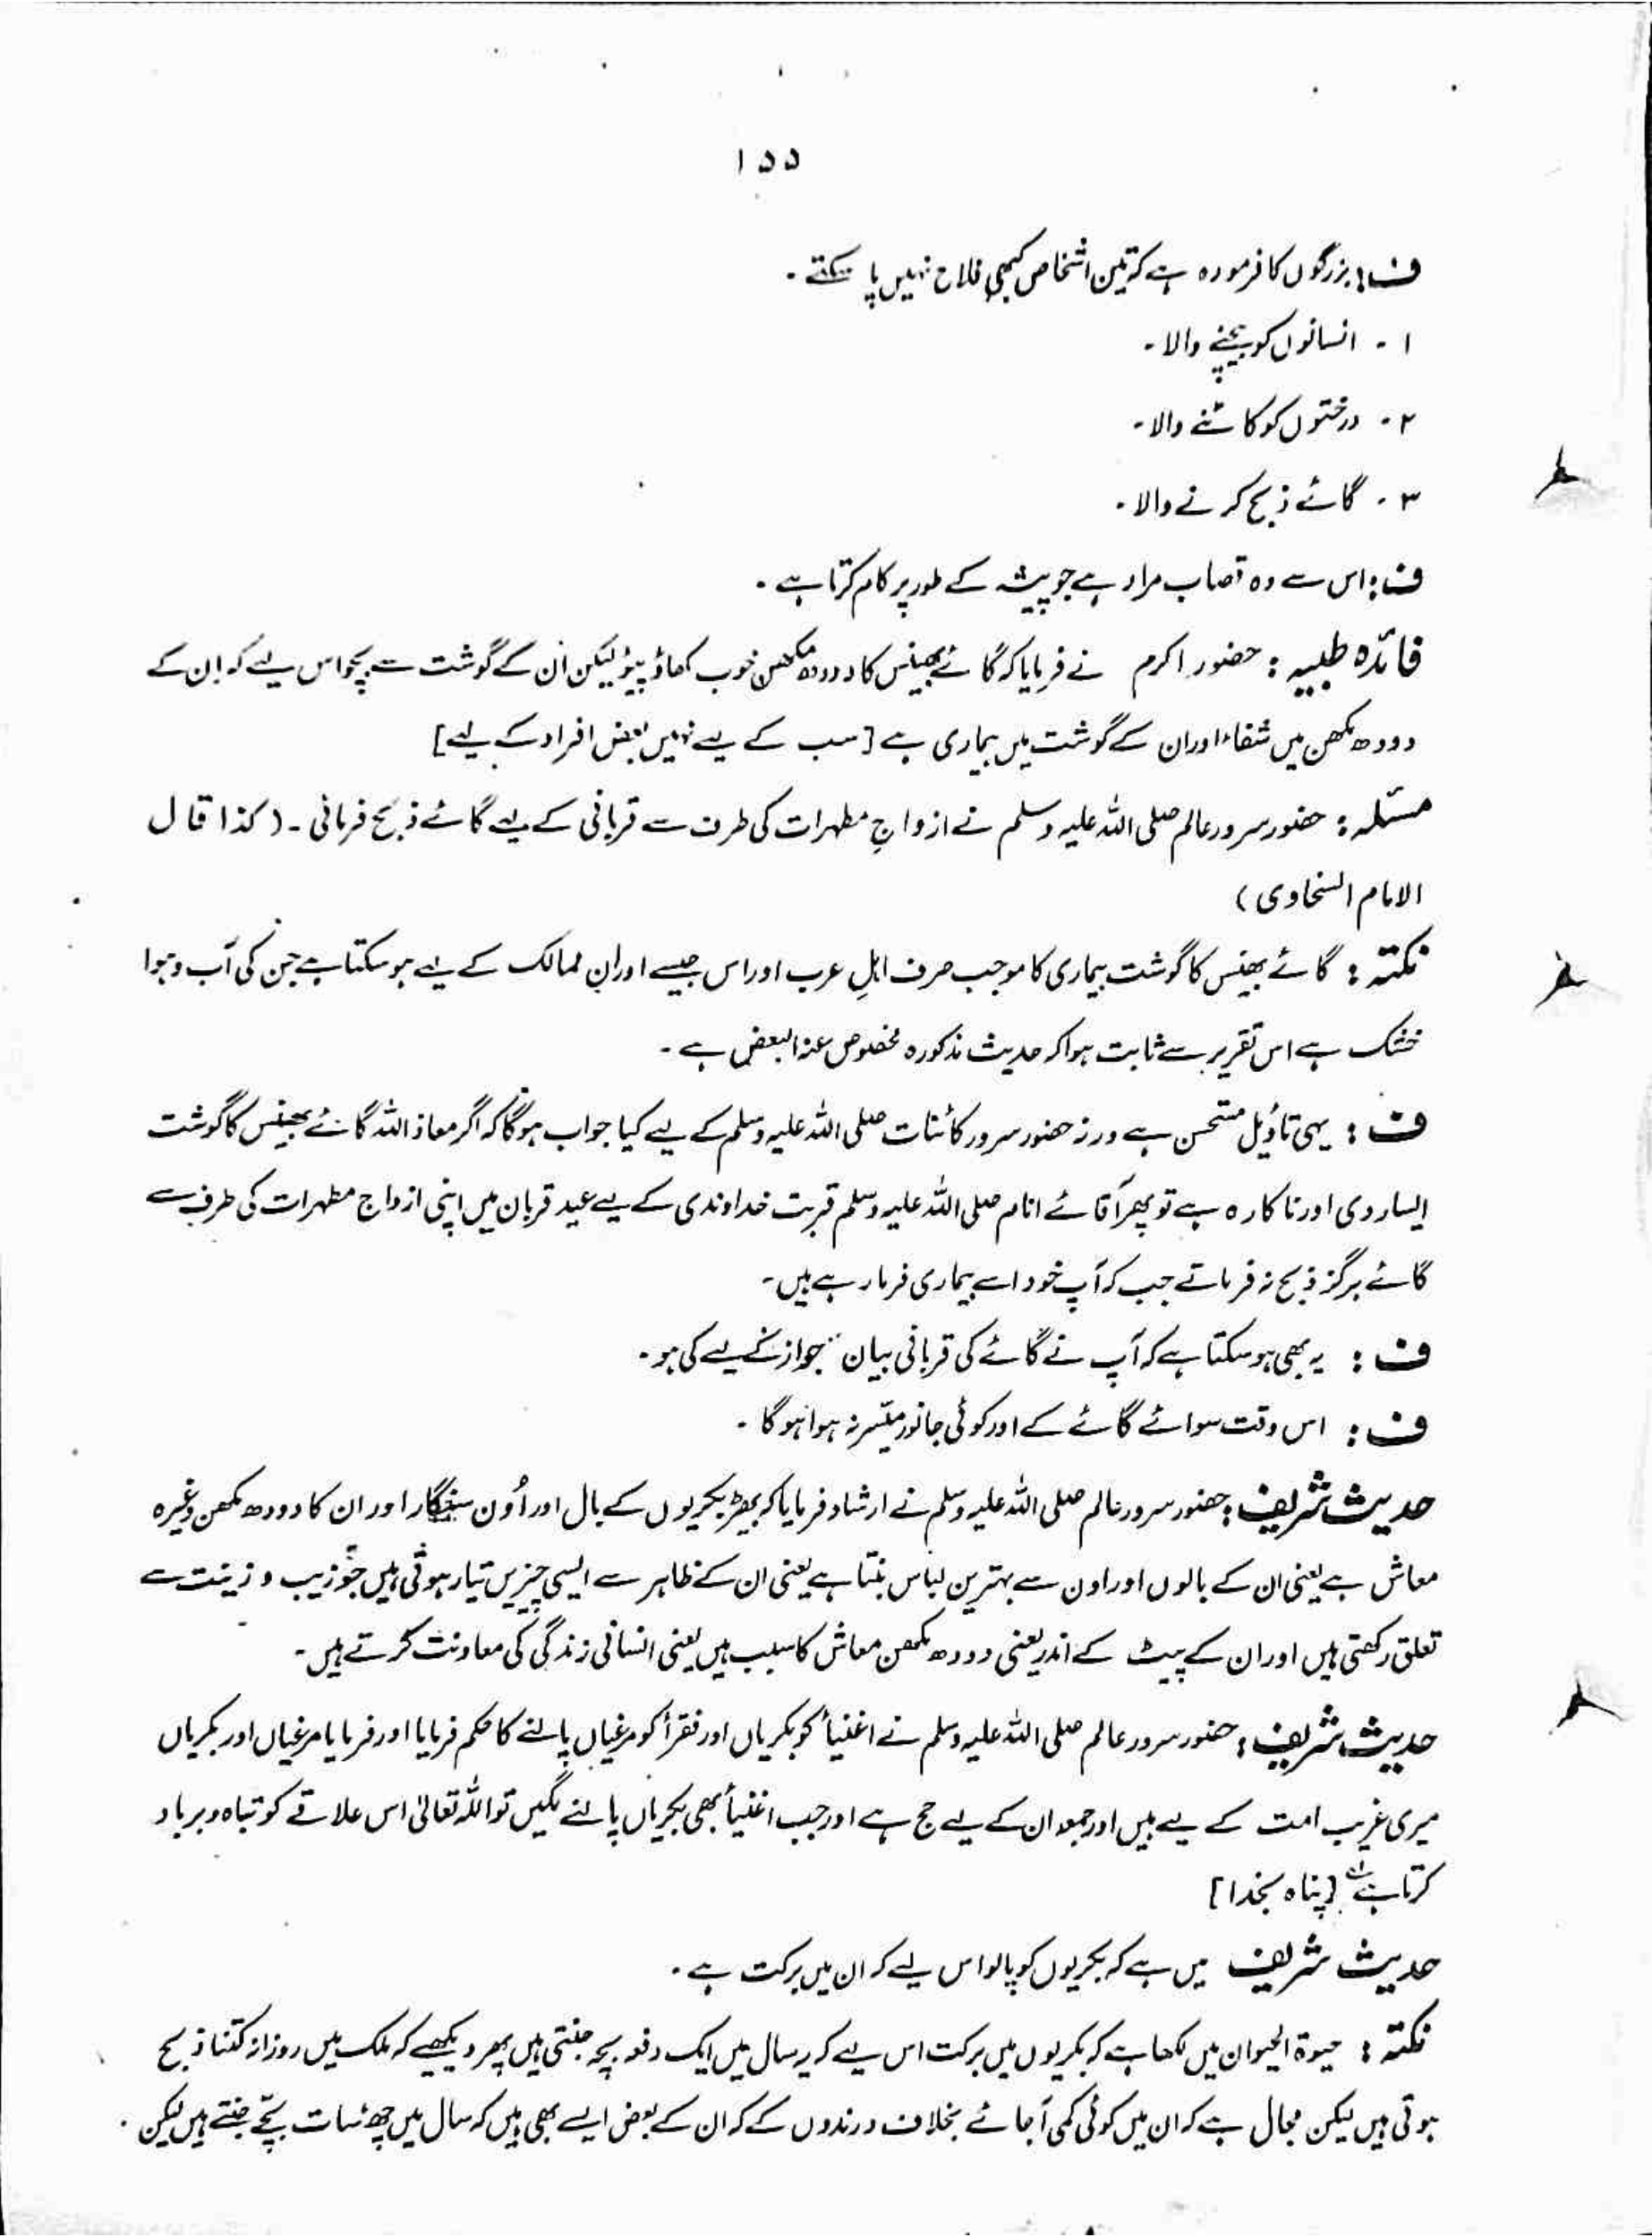 ۱۵۵
ف: بزرگوں کا فرمودہ ہے کہ تین اشخاص کبھی فلاح نہیں پا سکتے۔
۱۔ انسانوں کو بیچنے والا۔
۲۔ درختوں کو کاٹنے والا۔
۳۔ گائے ذبح کرنے والا۔
ف: اس سے وہ قصاب مراد ہے جو پیشہ کے طور پر کام کرتا ہے۔
فائدہ طبیہ: حضور اکرم نے فرمایا کہ گائے بھینس کا دودھ مکھن خوب کھاؤ پیؤ لیکن اُن کے گوشت سے بچو اس لیے کہ اِن کے
دودھ مکھن میں شفاء اور ان کے گوشت میں بیماری ہے [سب کے لیے نہیں بعض افراد کے لیے]
مسئلہ: حضور سرور عالم صلی اللہ علیہ وسلم نے ازواجِ مطہرات کی طرف سے قربانی کے لیے گائے ذبح فرمائی۔ (کذا قال
الامام السخاوی)
نکتہ: گائے بھینس کا گوشت بیماری کا موجب صرف اہلِ عرب اور اس جیسے اور ان ممالک کے لیے ہو سکتا ہے جن کی آب و ہوا
خشک ہے اس تقریر سے ثابت ہوا کہ حدیث مذکورہ مخصوص عنہ البعض ہے۔
ف: یہی تاویل مستحسن ہے ورنہ حضور سرور کائنات صلی اللہ علیہ وسلم کے لیے کیا جواب ہوگا کہ اگر معاذ اللہ گائے بھینس کا گوشت
ایسا ردی اور ناکارہ ہے تو پھر آقائے انام صلی اللہ علیہ وسلم قربت خداوندی کے لیے عید قربان میں اپنی ازواج مطہرات کی طرف سے
گائے ہرگز ذبح نہ فرماتے جب کہ آپ خود اسے بیماری فرما رہے ہیں۔
ف: یہ بھی ہو سکتا ہے کہ آپ نے گائے کی قربانی بیان جواز کے لیے کی ہو۔
ف: اس وقت سوائے گائے کے اور کوئی جانور میسّر نہ ہوا ہوگا۔
حدیث شریف: حضور سرور عالم صلی اللہ علیہ وسلم نے ارشاد فرمایا کہ بھیڑ بکریوں کے بال اور اُون سنگار اور ان کا دودھ مکھن وغیرہ
معاش ہے یعنی ان کے بالوں اور اون سے بہترین لباس بنتا ہے یعنی ان کے ظاہر سے ایسی چیزیں تیار ہوتی ہیں جو زیب و زینت سے
تعلق رکھتی ہیں اور ان کے پیٹ کے اندر یعنی دودھ مکھن معاش کا سبب ہیں یعنی انسانی زندگی کی معاونت کرتے ہیں۔
حدیث شریف: حضور سرور عالم صلی اللہ علیہ وسلم نے اغنیأ کو بکریاں اور فقرأ کو مرغیاں پالنے کا حکم فرمایا اور فرمایا مرغیاں اور بکریاں
میری غریب امت کے لیے ہیں اور جمعہ ان کے لیے حج ہے اور جب اغنیأ بھی بکریاں پالنے لگیں تو اللہ تعالیٰ اس علاقے کو تباہ و برباد
کرتا ہے [پناہ بخدا]
حدیث شریف میں ہے کہ بکریوں کو پالو اس لیے کہ ان میں برکت ہے۔
نکتہ: حیوۃ الحیوان میں لکھا ہے کہ بکریوں میں برکت اس لیے کہ یہ سال میں ایک دفعہ بچہ جنتی ہیں پھر دیکھیے کہ ملک میں روزانہ کتنا ذبح
ہوتی ہیں لیکن مجال ہے کہ ان میں کوئی کمی آ جائے بخلاف درندوں کے کہ ان کے بعض ایسے بھی ہیں کہ سال میں چھ سات بچّے جنتے ہیں لیکن